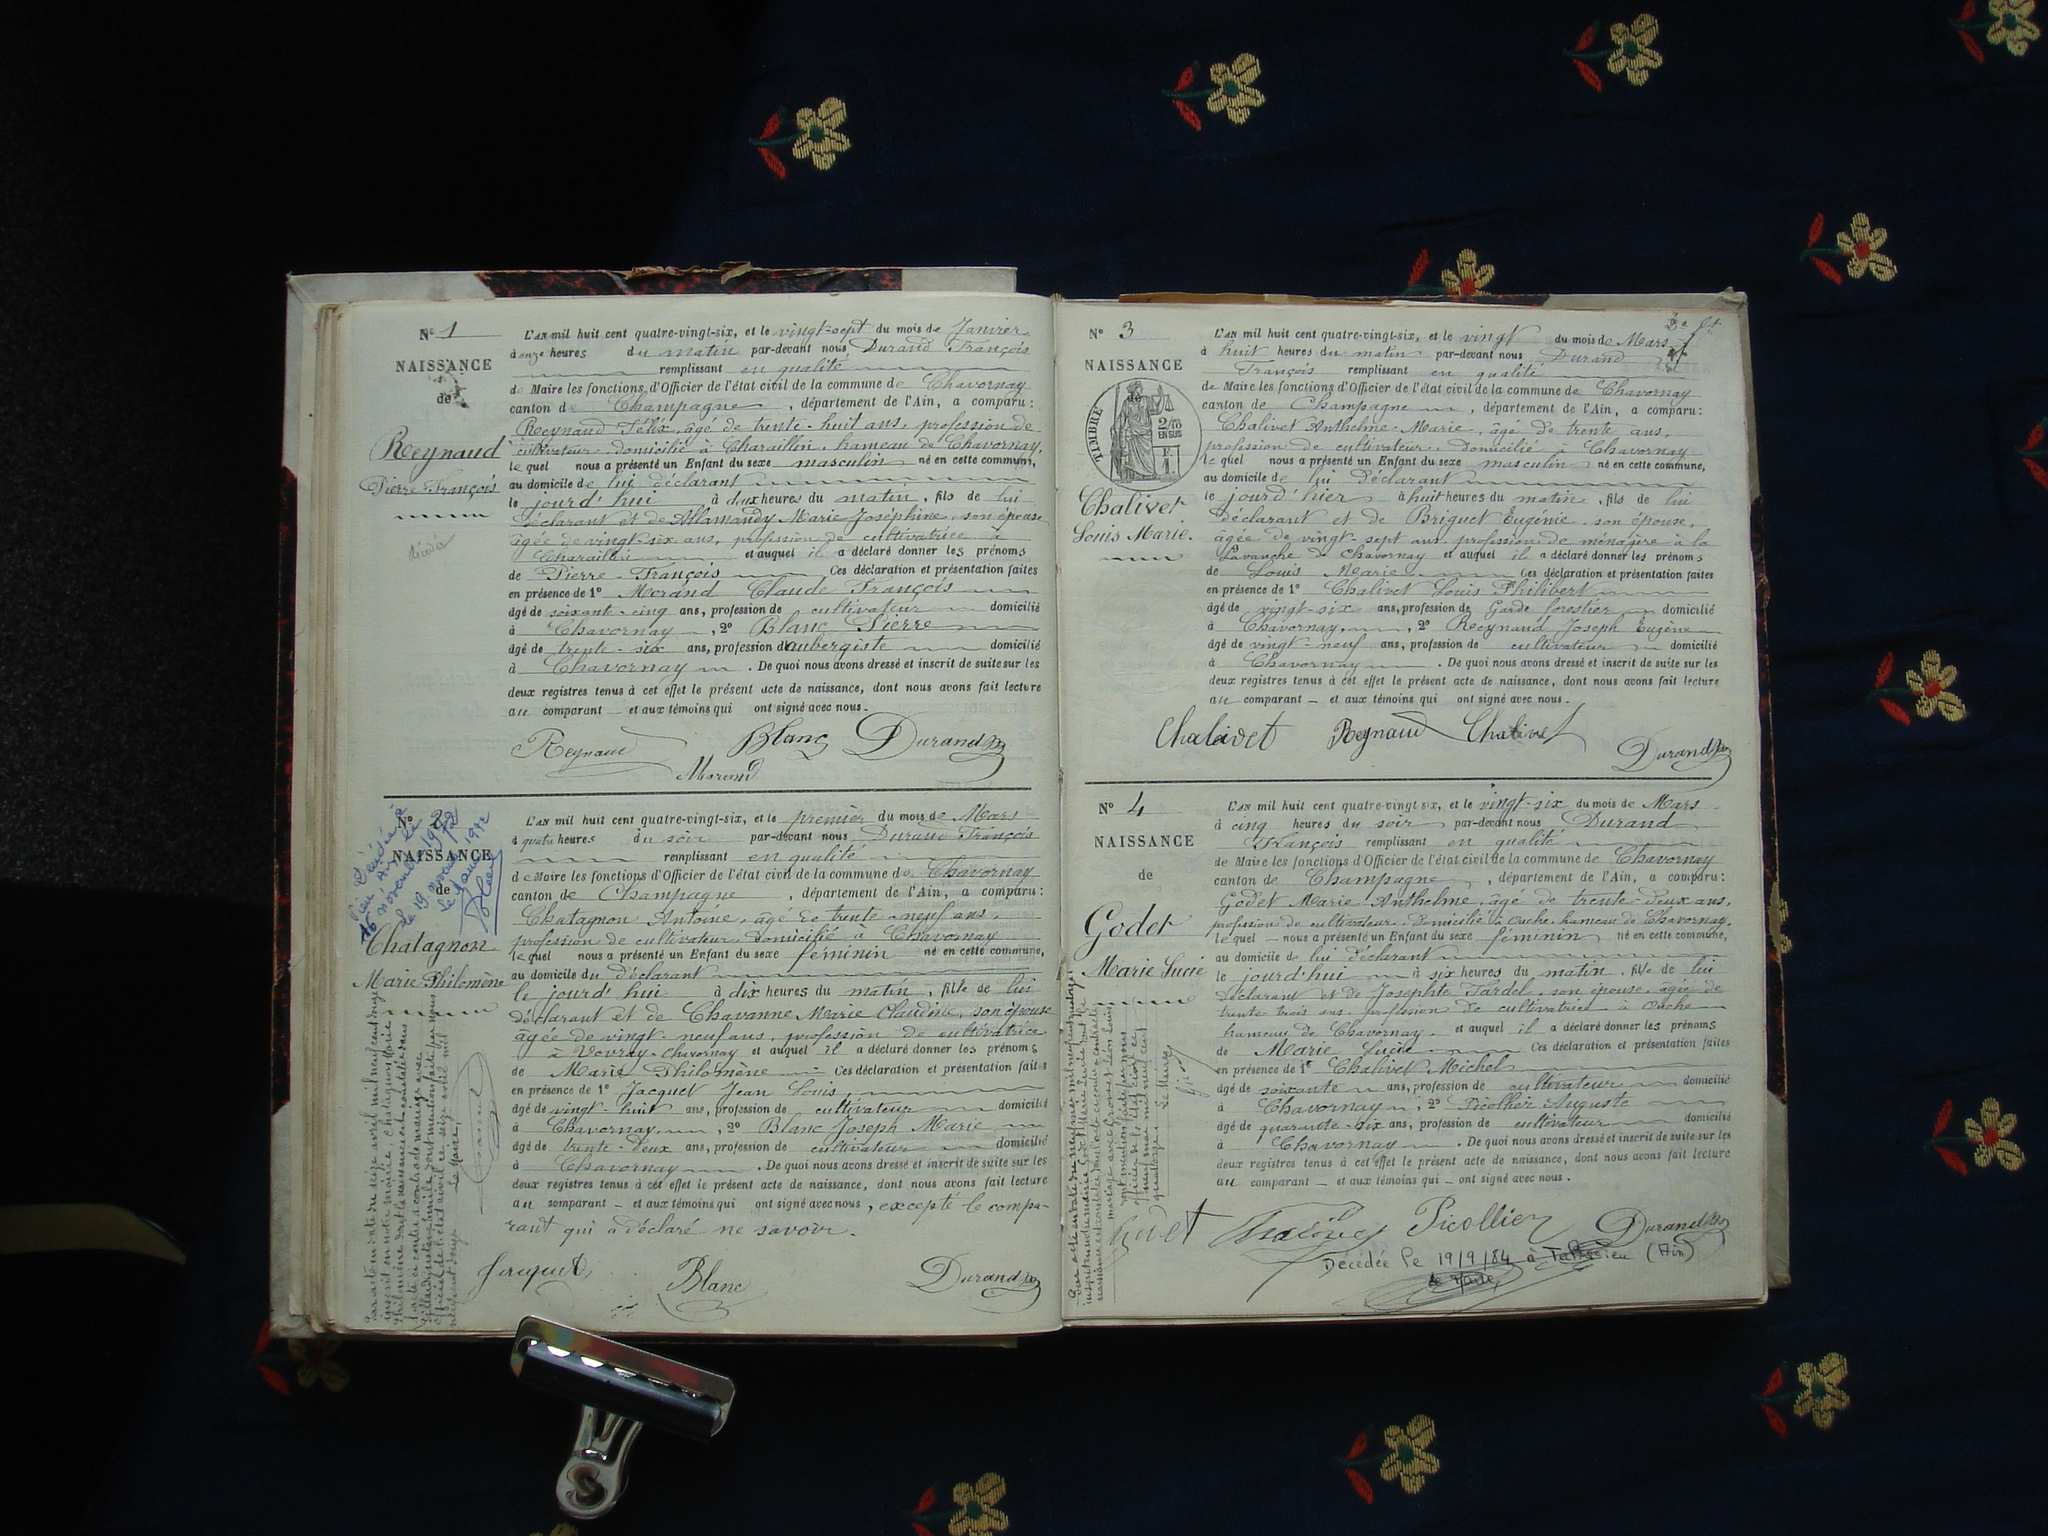 N° 1
NAISSANCE
de
Reynaud
Pierre-François
décédé
L'AN mil huit cent quatre-vingt-six, et le vingt-sept du mois de Janvier
à onze heures du matin par-devant nous Durand François
remplissant en qualité
de Maire les fonctions d'Officier de l'état civil de la commune de Chavornay
canton de Champagne, département de l'Ain, a comparu:
Reynaud Félix, âgé de trente-huit ans, profession de
cultivateur, domicilié à Charaillin, hameau de Chavornay,
lequel nous a présenté un Enfant du sexe masculin né en cette commune,
au domicile de lui déclarant
le jourd'hui à deux heures du matin, fils de lui
déclarant et de Allamandy Marie Joséphine, son épouse
âgée de vingt-six ans, profession de cultivatrice à
Charaillin et auquel il a déclaré donner les prénoms
de Pierre-François Ces déclaration et présentation faites
en présence de 1° Morand Claude François
âgé de soixant-cinq ans, profession de cultivateur domicilié
à Chavornay, 2° Blanc Pierre
âgé de trente-six ans, profession d'aubergiste domicilié
à Chavornay. De quoi nous avons dressé et inscrit de suite sur les
deux registres tenus à cet effet le présent acte de naissance, dont nous avons fait lecture
au comparant et aux témoins qui ont signé avec nous.
Reynaud Blanc Durand
Morand
N° 2
NAISSANCE
de
Chatagnon
Marie-Philomène
L'AN mil huit cent quatre-vingt-six, et le premier du mois de Mars
à quatre heures du soir par-devant nous Durand François
remplissant en qualité
de Maire les fonctions d'Officier de l'état civil de la commune de Chavornay
canton de Champagne, département de l'Ain, a comparu:
Chatagnon Antoine, âgé de trente-neuf ans,
profession de cultivateur, domicilié à Chavornay
lequel nous a présenté un Enfant du sexe féminin né en cette commune,
au domicile du déclarant
le jourd'hui à dix heures du matin, fille de lui
déclarant et de Chavanne Marie Claudine, son épouse
âgée de vingt-neuf ans, profession de cultivatrice
à Vovray-Chavornay et auquel il a déclaré donner les prénoms
de Marie Philomène Ces déclaration et présentation faites
en présence de 1° Jacquet Jean Louis
âgé de vingt-huit ans, profession de cultivateur domicilié
à Chavornay, 2° Blanc Joseph Marie
âgé de trente-deux ans, profession de cultivateur domicilié
à Chavornay. De quoi nous avons dressé et inscrit de suite sur les
deux registres tenus à cet effet le présent acte de naissance, dont nous avons fait lecture
au comparant et aux témoins qui ont signé avec nous, excepté le compa-
rant qui a déclaré ne savoir.
Jacquet Blanc Durand
N° 3
NAISSANCE
TIMBRE
Chalivet
Louis Marie.
L'AN mil huit cent quatre-vingt-six, et le vingt du mois de Mars
à huit heures du matin par-devant nous Durand
François remplissant en qualité
de Maire les fonctions d'Officier de l'état civil de la commune de Chavornay
canton de Champagne, département de l'Ain, a comparu:
Chalivet Anthelme-Marie, âgé de trente ans,
profession de cultivateur, domicilié à Chavornay
lequel nous a présenté un Enfant du sexe masculin né en cette commune,
au domicile de lui déclarant
le jourd'hier à huit heures du matin, fils de lui
déclarant et de Briguet Eugénie, son épouse,
âgée de vingt-sept ans, profession de ménagère à la
Lavanche de Chavornay et auquel il a déclaré donner les prénoms
de Louis Marie Ces déclaration et présentation faites
en présence de 1° Chalivet Louis Philibert
âgé de vingt-six ans, profession de Garde forestier domicilié
à Chavornay, 2° Reynaud Joseph Eugène
âgé de vingt-neuf ans, profession de cultivateur domicilié
à Chavornay. De quoi nous avons dressé et inscrit de suite sur les
deux registres tenus à cet effet le présent acte de naissance, dont nous avons fait lecture
au comparant et aux témoins qui ont signé avec nous.
Chalivet Reynaud Chalivet
Durand
N° 4
NAISSANCE
de
Godet
Marie Lucie
L'AN mil huit cent quatre-vingt-six, et le vingt-six du mois de Mars
à cinq heures du soir par-devant nous Durand
François remplissant en qualité
de Maire les fonctions d'Officier de l'état civil de la commune de Chavornay
canton de Champagne, département de l'Ain, a comparu:
Godet Marie-Anthelme, âgé de trente-deux ans,
profession de cultivateur, domicilié à Ouche, hameau de Chavornay,
lequel nous a présenté un Enfant du sexe féminin né en cette commune,
au domicile de lui déclarant
le jourd'hui à six heures du matin, fille de lui
déclarant et de Josephte Tardel, son épouse, âgée de
trente trois ans, profession de cultivatrice à Ouche
hameau de Chavornay et auquel il a déclaré donner les prénoms
de Marie Lucie Ces déclaration et présentation faites
en présence de 1° Chalivet Michel
âgé de soixante ans, profession de cultivateur domicilié
à Chavornay, 2° Picollier Auguste
âgé de quarante-six ans, profession de cultivateur domicilié
à Chavornay. De quoi nous avons dressé et inscrit de suite sur les
deux registres tenus à cet effet le présent acte de naissance, dont nous avons fait lecture
au comparant et aux témoins qui ont signé avec nous.
Godet Picollier Durand
Décédée le 19/9/84 à (Ain)
le Maire